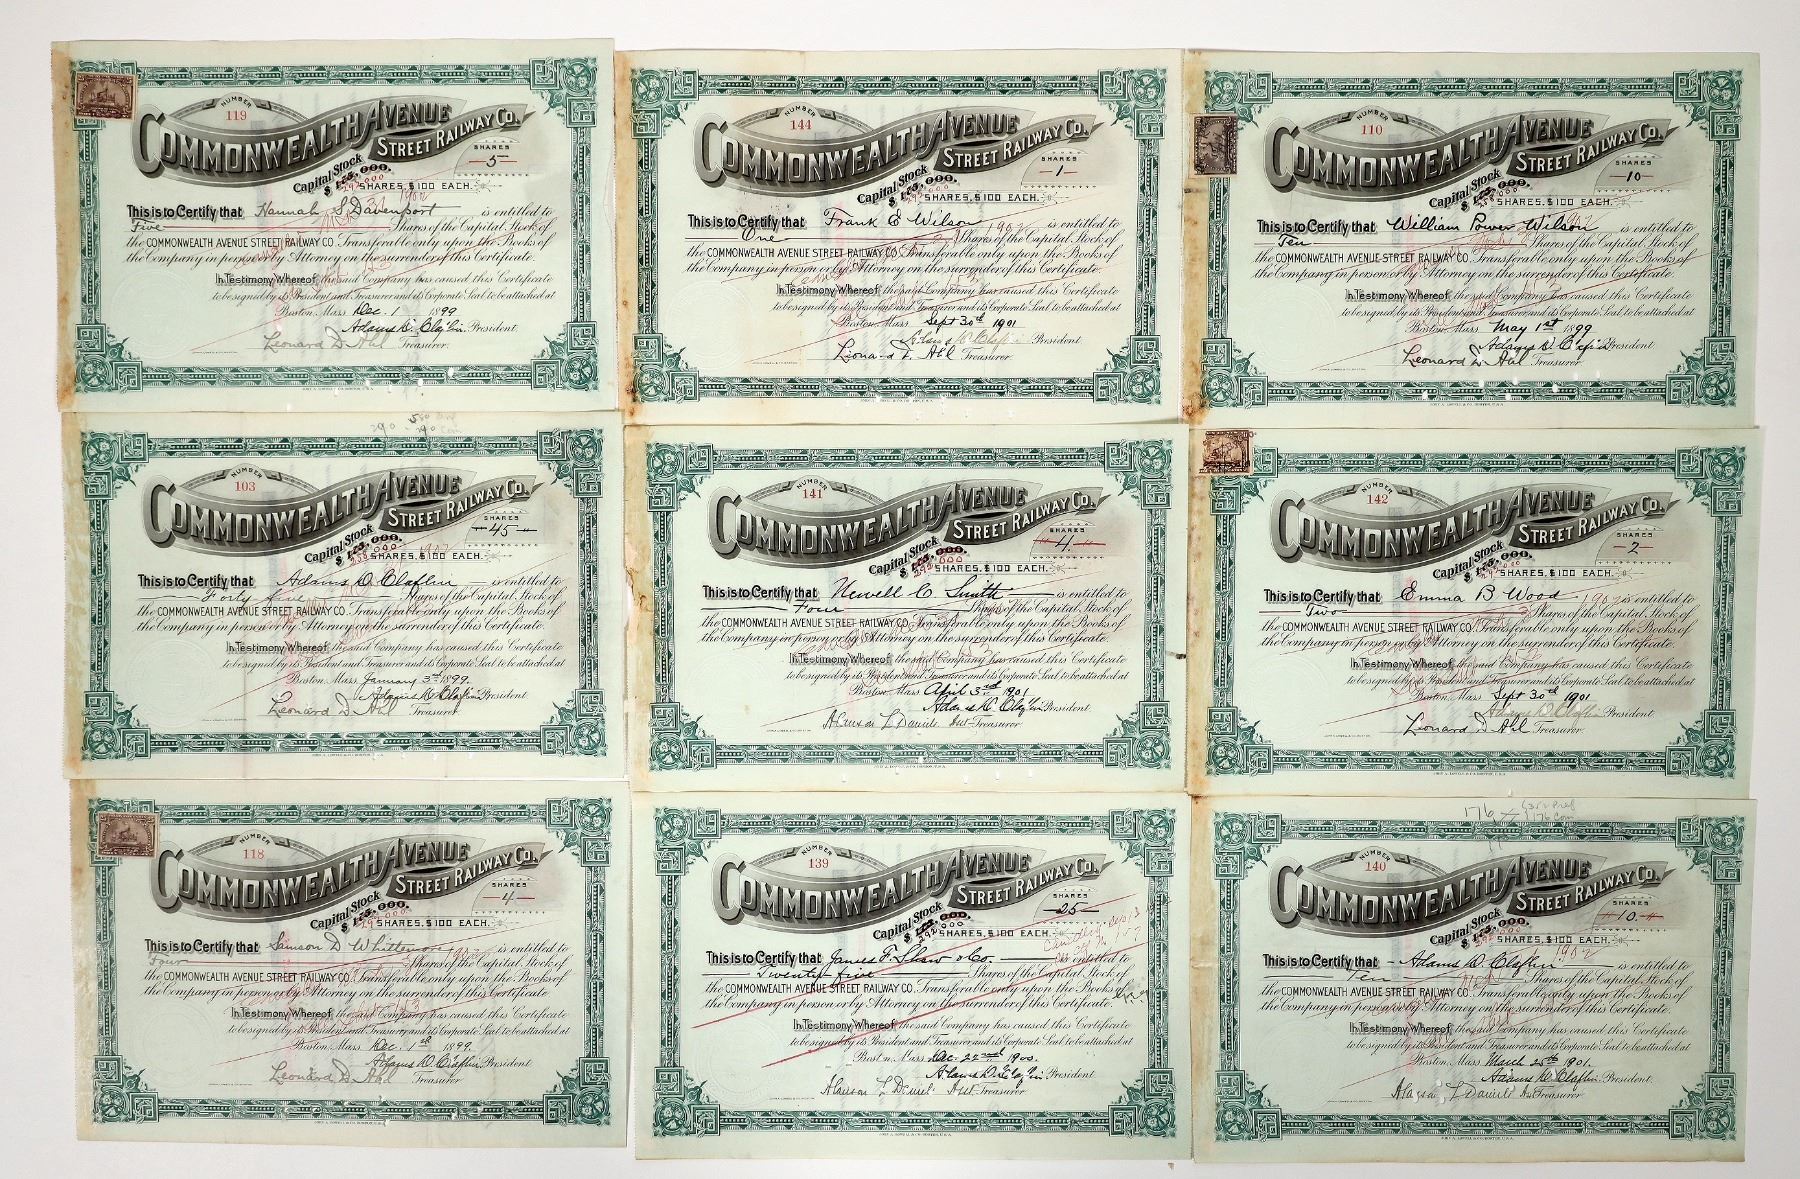 NUMBER
119
COMMONWEALTH AVENUE
STREET RAILWAY CO.
SHARES
5
Capital Stock
SHARES, $100 EACH.
This is to Certify that Hannah S Davenport is entitled to
Five Shares of the Capital Stock of
the COMMONWEALTH AVENUE STREET RAILWAY CO. Transferable only upon the Books of
the Company in person or by Attorney on the surrender of this Certificate.
In Testimony Whereof the said Company has caused this Certificate
to be signed by its President and Treasurer and its Corporate Seal to be attached at
Boston, Mass. Dec. 1 1899
Adams D. Claflin President.
Leonard D Ahl Treasurer.
NUMBER
144
COMMONWEALTH AVENUE
STREET RAILWAY CO.
SHARES
-1-
Capital Stock
SHARES, $100 EACH.
This is to Certify that Frank E Wilson is entitled to
One Shares of the Capital Stock of
the COMMONWEALTH AVENUE STREET RAILWAY CO. Transferable only upon the Books of
the Company in person or by Attorney on the surrender of this Certificate.
In Testimony Whereof the said Company has caused this Certificate
to be signed by its President and Treasurer and its Corporate Seal to be attached at
Boston, Mass. Sept 30th 1901
President
Leonard D. Ahl Treasurer.
NUMBER
110
COMMONWEALTH AVENUE
STREET RAILWAY CO.
SHARES
-10-
Capital Stock
SHARES, $100 EACH.
This is to Certify that William Power Wilson is entitled to
Ten Shares of the Capital Stock of
the COMMONWEALTH AVENUE STREET RAILWAY CO. Transferable only upon the Books of
the Company in person or by Attorney on the surrender of this Certificate.
In Testimony Whereof the said Company has caused this Certificate
to be signed by its President and Treasurer and its Corporate Seal to be attached at
Boston, Mass. May 1st 1899
Adams D. Claflin President
Leonard D Ahl Treasurer.
NUMBER
103
COMMONWEALTH AVENUE
STREET RAILWAY CO.
SHARES
45
Capital Stock
SHARES, $100 EACH.
This is to Certify that Adams D. Claflin is entitled to
Forty five Shares of the Capital Stock of
the COMMONWEALTH AVENUE STREET RAILWAY CO. Transferable only upon the Books of
the Company in person or by Attorney on the surrender of this Certificate.
In Testimony Whereof the said Company has caused this Certificate
to be signed by its President and Treasurer and its Corporate Seal to be attached at
Boston, Mass. January 3rd 1899.
Adams D. Claflin President
Leonard D. Ahl Treasurer
NUMBER
141
COMMONWEALTH AVENUE
STREET RAILWAY CO.
SHARES
4.
Capital Stock
SHARES, $100 EACH.
This is to Certify that Newell C. Smith is entitled to
Four Shares of the Capital Stock of
the COMMONWEALTH AVENUE STREET RAILWAY CO. Transferable only upon the Books of
the Company in person or by Attorney on the surrender of this Certificate.
In Testimony Whereof the said Company has caused this Certificate
to be signed by its President and Treasurer and its Corporate Seal to be attached at
Boston, Mass. April 3rd 1901
Adams D. Claflin President
Daniels Asst Treasurer.
NUMBER
142
COMMONWEALTH AVENUE
STREET RAILWAY CO.
SHARES
-2-
Capital Stock
SHARES, $100 EACH.
This is to Certify that Emma B Wood is entitled to
Two Shares of the Capital Stock of
the COMMONWEALTH AVENUE STREET RAILWAY CO. Transferable only upon the Books of
the Company in person or by Attorney on the surrender of this Certificate.
In Testimony Whereof the said Company has caused this Certificate
to be signed by its President and Treasurer and its Corporate Seal to be attached at
Boston, Mass. Sept 30th 1901
Adams D. Claflin President
Leonard D. Ahl Treasurer.
NUMBER
118
COMMONWEALTH AVENUE
STREET RAILWAY CO.
SHARES
-4-
Capital Stock
SHARES, $100 EACH.
This is to Certify that Samson D Whittemore is entitled to
Four Shares of the Capital Stock of
the COMMONWEALTH AVENUE STREET RAILWAY CO. Transferable only upon the Books of
the Company in person or by Attorney on the surrender of this Certificate.
In Testimony Whereof the said Company has caused this Certificate
to be signed by its President and Treasurer and its Corporate Seal to be attached at
Boston, Mass. Dec. 1st 1899.
Adams D. Claflin President
Leonard D Ahl Treasurer
NUMBER
139
COMMONWEALTH AVENUE
STREET RAILWAY CO.
SHARES
25
Capital Stock
SHARES, $100 EACH.
This is to Certify that James F. Shaw & Co. is entitled to
Twenty five Shares of the Capital Stock of
the COMMONWEALTH AVENUE STREET RAILWAY CO. Transferable only upon the Books of
the Company in person or by Attorney on the surrender of this Certificate.
In Testimony Whereof the said Company has caused this Certificate
to be signed by its President and Treasurer and its Corporate Seal to be attached at
Boston, Mass. Dec. 22nd 1900.
Adams D. Claflin President.
Daniels Asst Treasurer
NUMBER
140
COMMONWEALTH AVENUE
STREET RAILWAY CO.
SHARES
10
Capital Stock
SHARES, $100 EACH.
This is to Certify that Adams D. Claflin is entitled to
Ten Shares of the Capital Stock of
the COMMONWEALTH AVENUE STREET RAILWAY CO. Transferable only upon the Books of
the Company in person or by Attorney on the surrender of this Certificate.
In Testimony Whereof the said Company has caused this Certificate
to be signed by its President and Treasurer and its Corporate Seal to be attached at
Boston, Mass. March 25th 1901.
Adams D. Claflin President
Daniels Asst Treasurer.